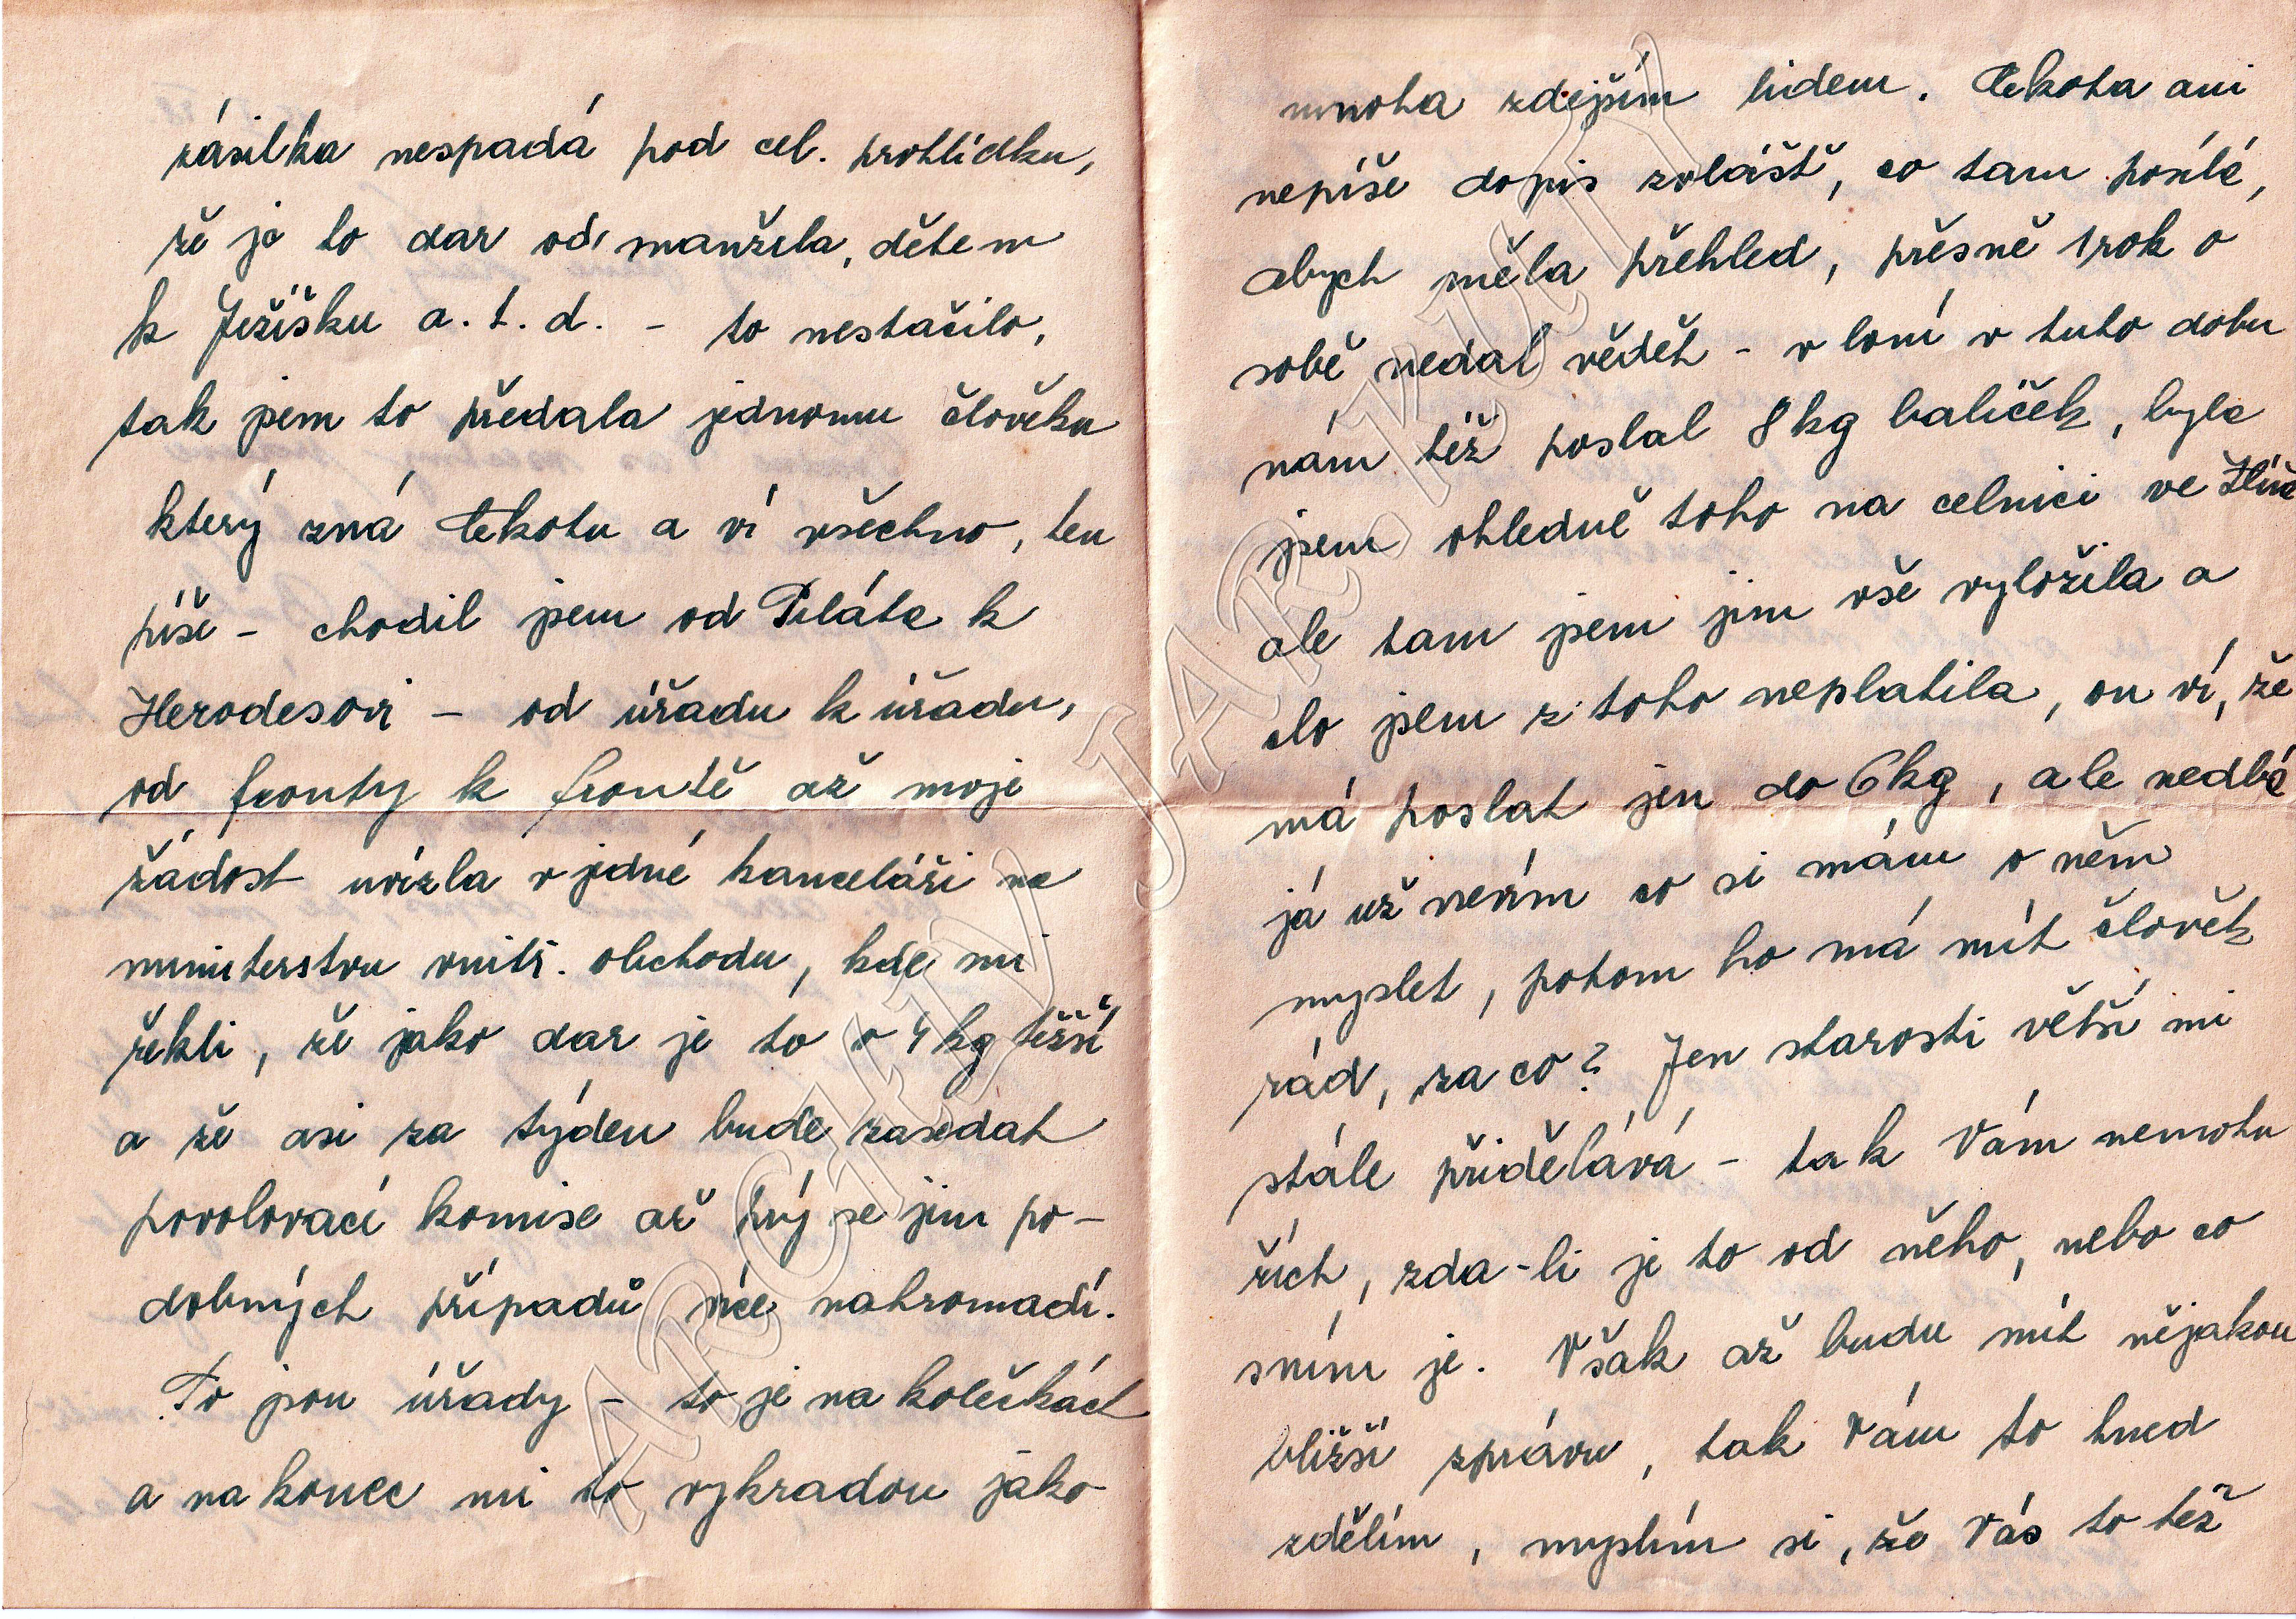 zásilka nespadá pod cel. prohlídku,
že je to dar od manžela, dětem
k Ježíšku a. t. d. - to nestačilo,
tak jsem to předala jednomu člověku
který zná Čekotu a ví všechno, ten
píše - chodil jsem od Piláta k
Herodesovi - od úřadu k úřadu,
od fronty k frontě až moje
žádost uvízla v jedné kanceláři na
ministerstvu vnitř. obchodu, kde mi
řekli, že jako dar je to o 4 kg těžší
a že asi za týden bude zasedat
povolovací komise až prý se jim po-
dobných případů více nahromadí.
To jsou úřady - to je na kolečkách
a na konec mi to vykradou jako
mnoha zdejším lidem. Čekota ani
nepíše dopis zvlášť, co tam posílá,
abych měla přehled, přesně 1 rok o
sobě nedal vědět - v loni v tuto dobu
nám též poslal 8 kg balíček, byla
jsem ohledně toho na celnici ve
ale tam jsem jim vše vyložila a
clo jsem z toho neplatila, on ví, že
má poslat jen do 6 kg, ale nedbá
já už nevím co si mám o něm
myslet, potom ho má mít člověk
rád, za co? Jen starosti větší mi
stále přidělává - tak Vám nemohu
řích, zda-li je to od něho, nebo co
sním je. Však až budu mít nějakou
bližší zprávu, tak Vám to hned
zdělím, myslím si, že Vás to též
ARCHIV JAR-KUT